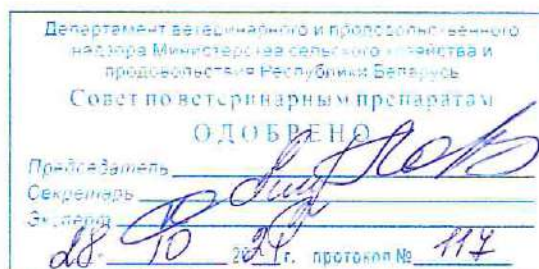 Департамент ветеринарного и продовольственного
надзора Министерства сельского хозяйства и
продовольствия Республики Беларусь
Совет по ветеринарным препаратам
ОДОБРЕНО
Председатель
Секретарь
Эксперт
28 10 2024 г. протокол № 117